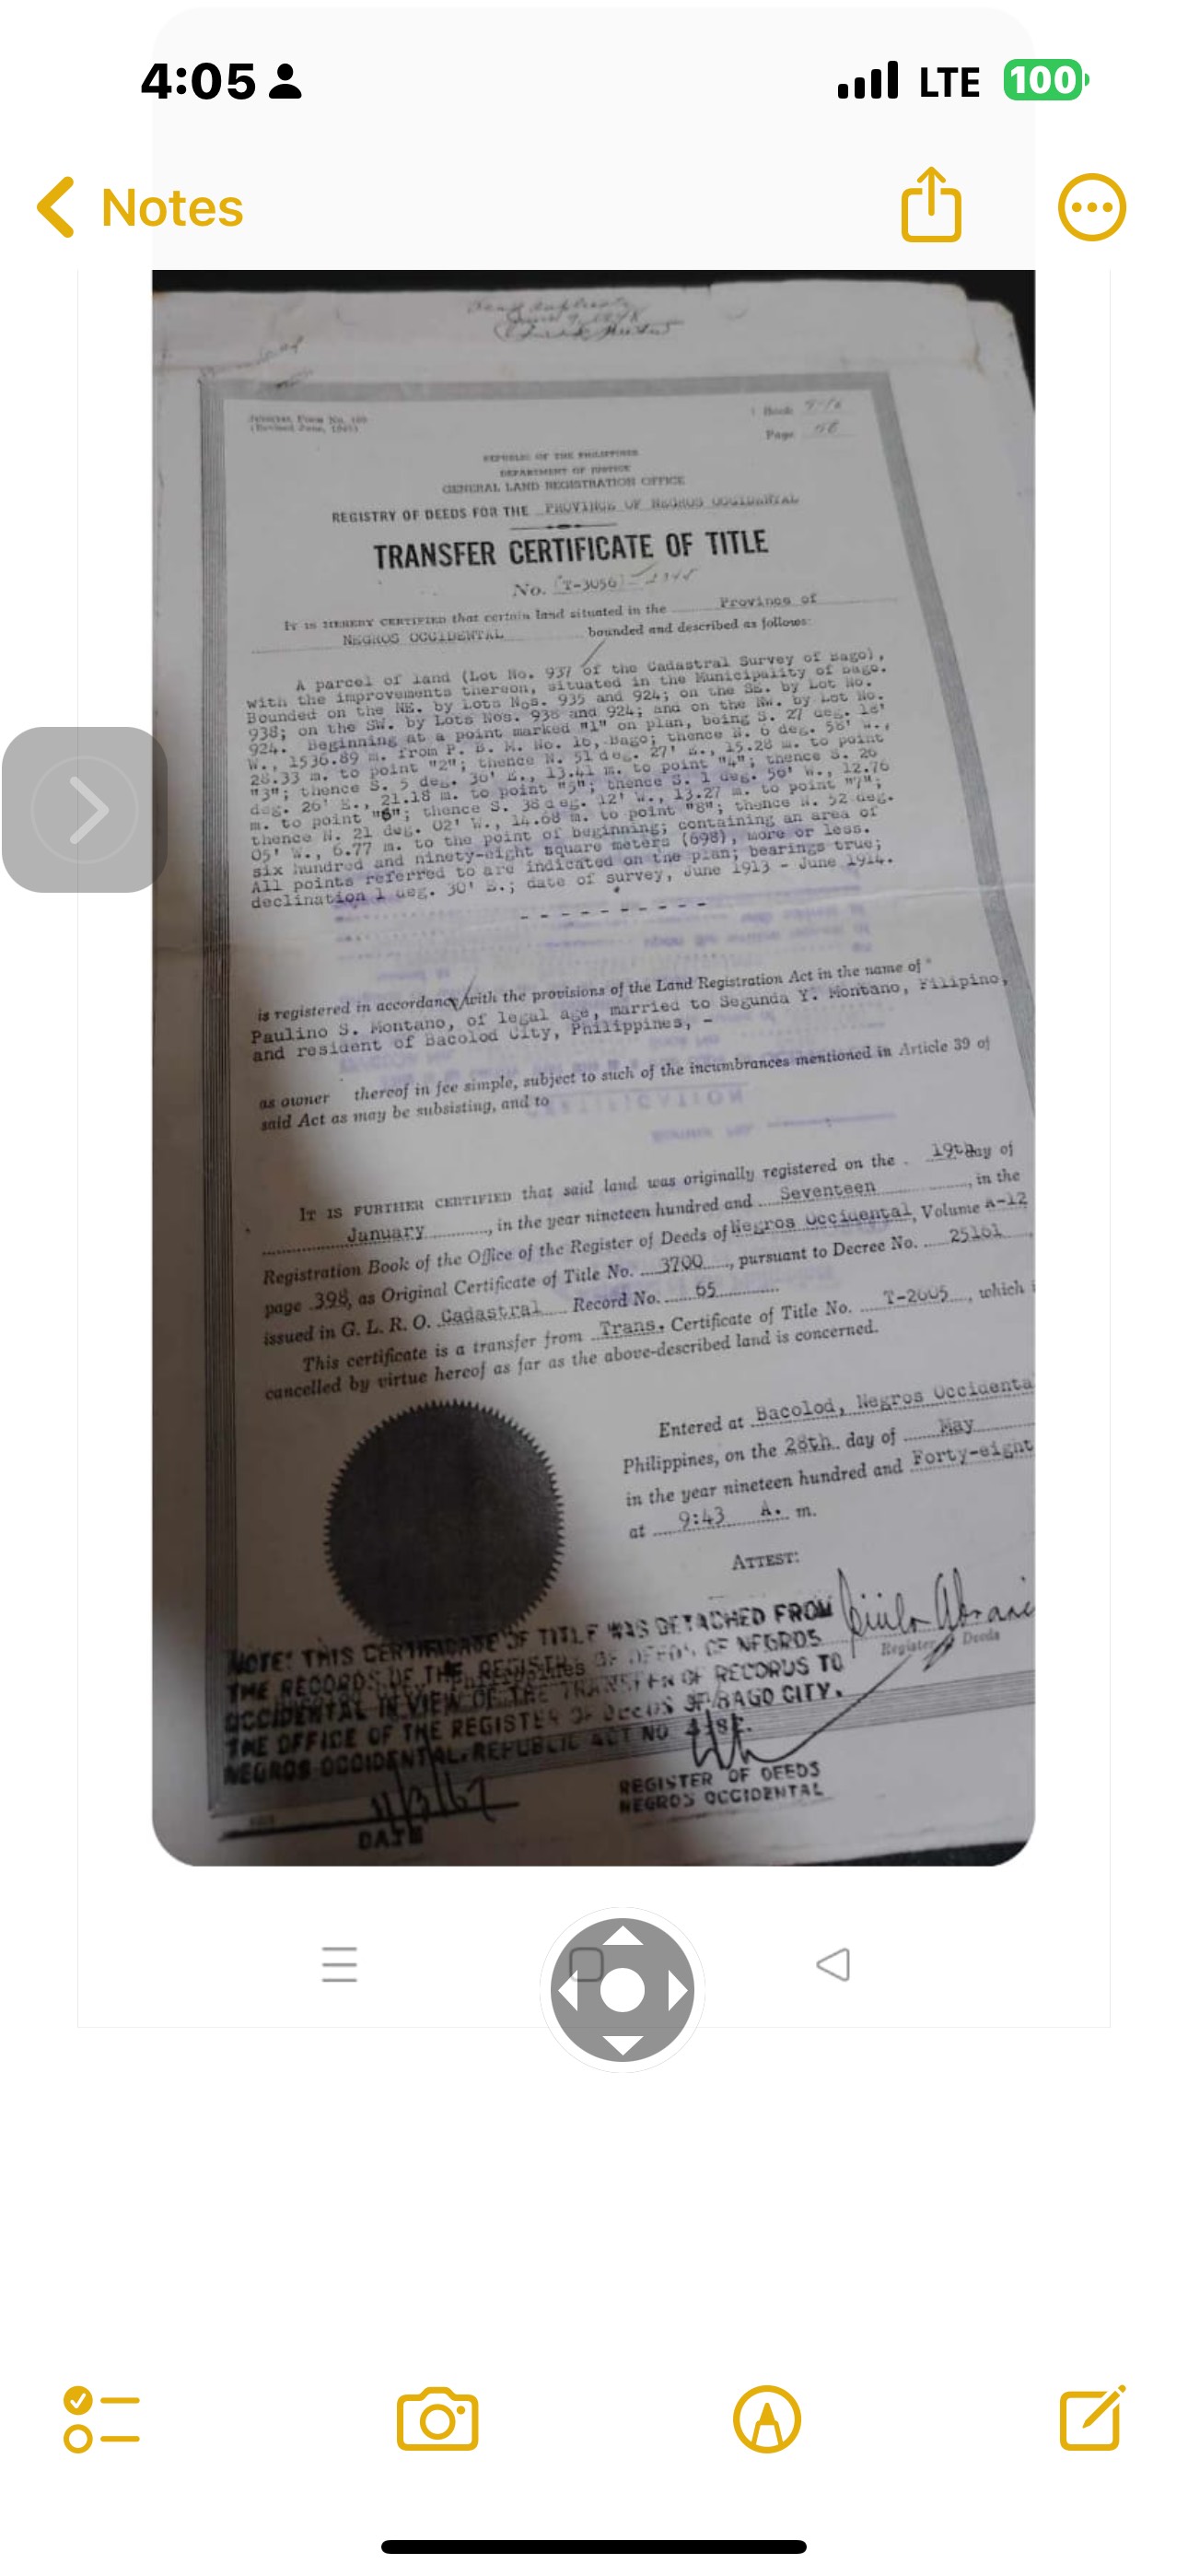 4:05
LTE 100
Notes
Book
Page
REPUBLIC OF THE PHILIPPINES
DEPARTMENT OF JUSTICE
GENERAL LAND REGISTRATION OFFICE
REGISTRY OF DEEDS FOR THE PROVINCE OF NEGROS OCCIDENTAL
TRANSFER CERTIFICATE OF TITLE
No. (T-3056)
IT IS HEREBY CERTIFIED that certain land situated in the Province of
NEGROS OCCIDENTAL bounded and described as follows:
A parcel of land (Lot No. 937 of the Cadastral Survey of Bago),
with the improvements thereon, situated in the Municipality of Bago.
Bounded on the NE. by Lots Nos. 935 and 924; on the SE. by Lot No.
938; on the SW. by Lots Nos. 938 and 924; and on the NW. by Lot No.
924. Beginning at a point marked "1" on plan, being S. 27 deg. 18'
W., 1536.89 m. from P. B. M. No. 16, Bago; thence N. 6 deg. 58' W.,
28.33 m. to point "2"; thence N. 51 deg. 27' E., 15.28 m. to point
"3"; thence S. 5 deg. 36' E., 13.41 m. to point "4"; thence S. 26
deg. 26' E., 21.18 m. to point "5"; thence S. 1 deg. 56' W., 12.76
m. to point "6"; thence S. 38 deg. 12' W., 13.27 m. to point "7";
thence N. 21 deg. 02' W., 14.68 m. to point "8"; thence N. 52 deg.
05' W., 6.77 m. to the point of beginning; containing an area of
six hundred and ninety-eight square meters (698), more or less.
All points referred to are indicated on the plan; bearings true;
declination 1 deg. 30' E.; date of survey, June 1913 - June 1914.
is registered in accordance with the provisions of the Land Registration Act in the name of
Paulino S. Montano, of legal age, married to Segunda Y. Montano, Filipino,
and resident of Bacolod City, Philippines, -
as owner thereof in fee simple, subject to such of the incumbrances mentioned in Article 39 of
said Act as may be subsisting, and to
IT IS FURTHER CERTIFIED that said land was originally registered on the 19th day of
January, in the year nineteen hundred and Seventeen, in the
Registration Book of the Office of the Register of Deeds of Negros Occidental, Volume A-12
page 398, as Original Certificate of Title No. 3700, pursuant to Decree No. 25161
issued in G. L. R. O. Cadastral Record No. 65
This certificate is a transfer from Trans. Certificate of Title No. T-2605, which i
cancelled by virtue hereof as far as the above-described land is concerned.
Entered at Bacolod, Negros Occidenta
Philippines, on the 28th day of May
in the year nineteen hundred and Forty-eight
at 9:43 A. m.
ATTEST:
Register of Deeds
NOTE: THIS CERTIFICATE OF TITLE WAS DETACHED FROM
THE RECORDS OF THE REGISTER OF DEEDS OF NEGROS
OCCIDENTAL IN VIEW OF THE TRANSFER OF RECORDS TO
THE OFFICE OF THE REGISTER OF DEEDS OF BAGO CITY,
NEGROS OCCIDENTAL, REPUBLIC ACT NO
REGISTER OF DEEDS
NEGROS OCCIDENTAL
DATE